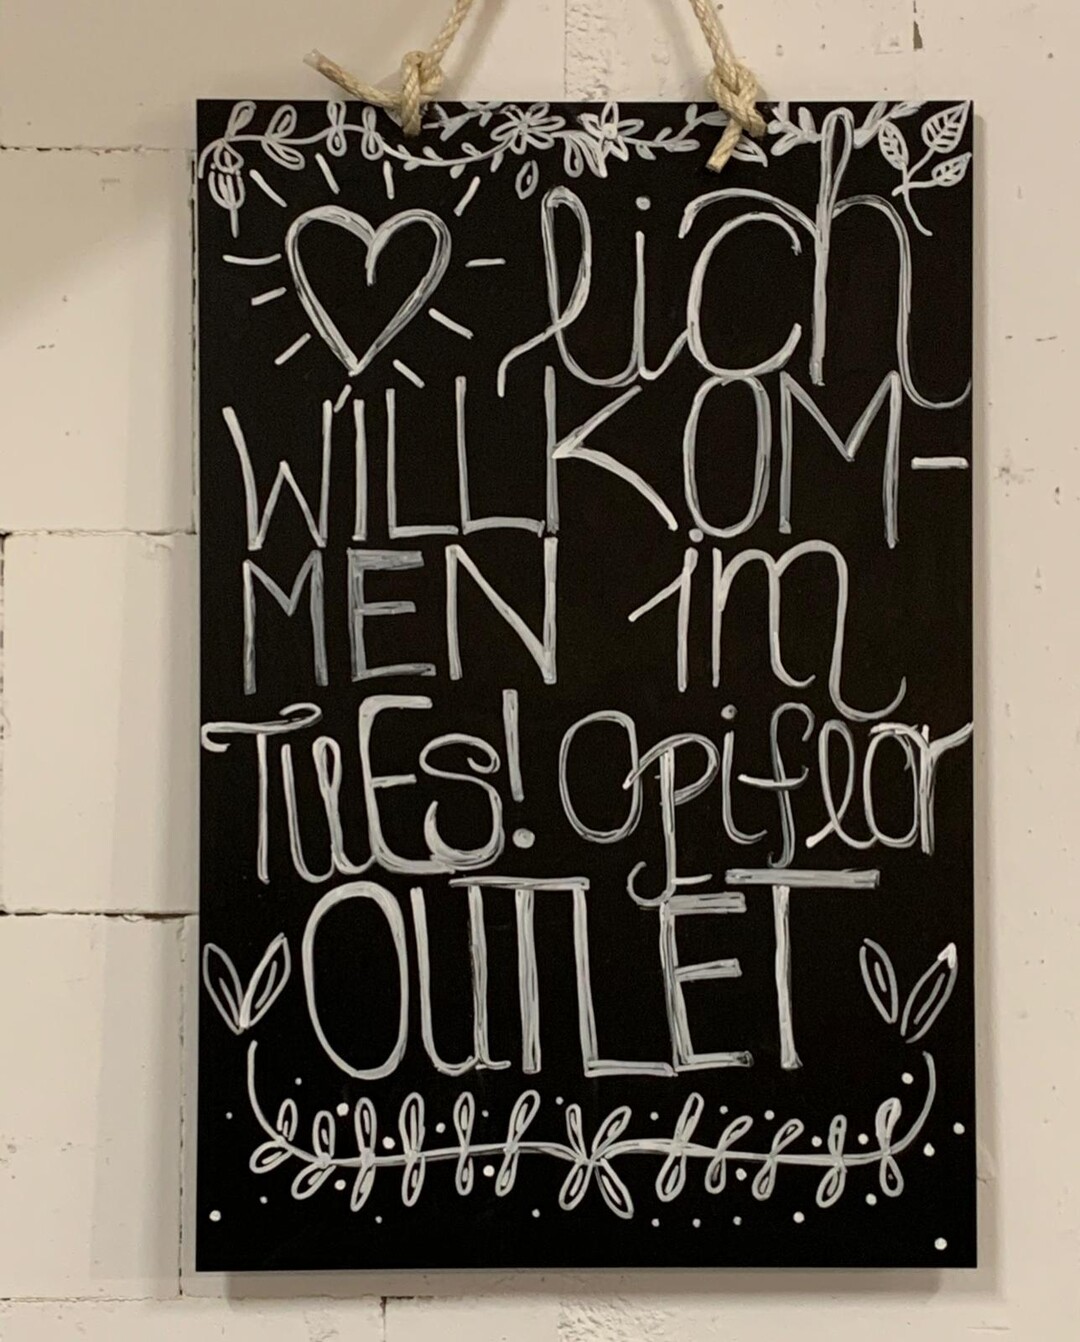 ♡lich
WILLKOM-
MEN im
TUES! Opiflor
OUTLET